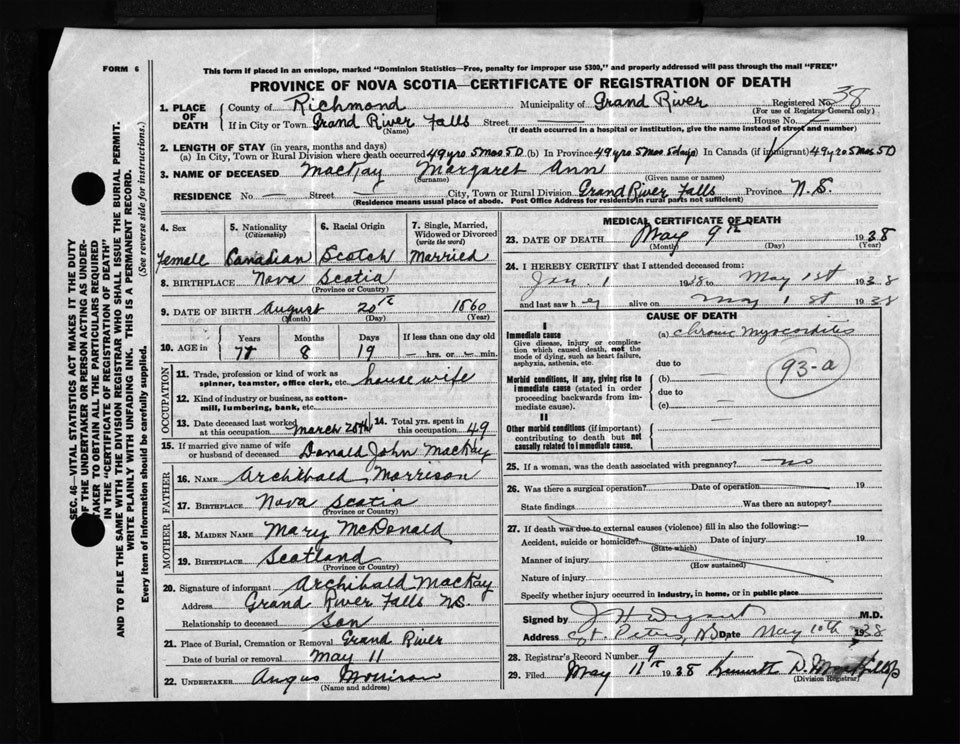 FORM 6
This form if placed in an envelope, marked "Dominion Statistics—Free, penalty for improper use $300," and properly addressed will pass through the mail "FREE"
PROVINCE OF NOVA SCOTIA—CERTIFICATE OF REGISTRATION OF DEATH
SEC. 46—VITAL STATISTICS ACT MAKES IT THE DUTY
OF THE UNDERTAKER OR PERSON ACTING AS UNDER-
TAKER TO OBTAIN ALL THE PARTICULARS REQUIRED
IN THE "CERTIFICATE OF REGISTRATION OF DEATH"
AND TO FILE THE SAME WITH THE DIVISION REGISTRAR WHO SHALL ISSUE THE BURIAL PERMIT.
WRITE PLAINLY WITH UNFADING INK. THIS IS A PERMANENT RECORD.
Every item of information should be carefully supplied. (See reverse side for instructions.)
1. PLACE OF DEATH County of Richmond Municipality of Grand River Registered No. 38
(For use of Registrar General only)
If in City or Town Grand River Falls Street House No.
(Name) (If death occurred in a hospital or institution, give the name instead of street and number)
2. LENGTH OF STAY (in years, months and days)
(a) In City, Town or Rural Division where death occurred 49 yrs 5 mos 5D (b) In Province 49 yrs 5 mos 5 days) In Canada (if immigrant) 49 yrs 5 mos 5D
3. NAME OF DECEASED MacKay Margaret Ann
(Surname) (Given name or names)
RESIDENCE No. Street City, Town or Rural Division Grand River Falls Province N.S.
(Residence means usual place of abode. Post Office Address for residents in rural parts not sufficient)
4. Sex 5. Nationality (Citizenship) 6. Racial Origin 7. Single, Married, Widowed or Divorced (write the word)
Female Canadian Scotch Married
8. BIRTHPLACE Nova Scotia
(Province or Country)
9. DATE OF BIRTH August 20th 1860
(Month) (Day) (Year)
10. AGE in Years Months Days If less than one day old
77 8 19 hrs. or min.
OCCUPATION
11. Trade, profession or kind of work as spinner, teamster, office clerk, etc. house wife
12. Kind of industry or business, as cotton-mill, lumbering, bank, etc.
13. Date deceased last worked at this occupation March 28th 14. Total yrs. spent in this occupation 49
15. If married give name of wife or husband of deceased Donald John MacKay
FATHER
16. NAME Archibald Morrison
17. BIRTHPLACE Nova Scotia
(Province or Country)
MOTHER
18. MAIDEN NAME Mary McDonald
19. BIRTHPLACE Scotland
(Province or Country)
20. Signature of informant Archibald MacKay
Address Grand River Falls N.S.
Relationship to deceased Son
21. Place of Burial, Cremation or Removal Grand River
Date of burial or removal May 11
22. UNDERTAKER Angus Morrison
(Name and address)
MEDICAL CERTIFICATE OF DEATH
23. DATE OF DEATH May 9th 1938
(Month) (Day) (Year)
24. I HEREBY CERTIFY that I attended deceased from:
Jan. 1 1938 to May 1st 1938
and last saw h er alive on May 1st 1938
CAUSE OF DEATH
I
Immediate cause (a) chronic myocarditis
Give disease, injury or complica-
tion which caused death, not the
mode of dying, such as heart failure,
asphyxia, asthenia, etc.
due to
93-a
Morbid conditions, if any, giving rise to (b)
immediate cause (stated in order due to
proceeding backwards from im- (c)
mediate cause).
II
Other morbid conditions (if important)
contributing to death but not
causally related to immediate cause.
25. If a woman, was the death associated with pregnancy? no
26. Was there a surgical operation? Date of operation 19
State findings Was there an autopsy?
27. If death was due to external causes (violence) fill in also the following:—
Accident, suicide or homicide? Date of injury 19
(State which)
Manner of injury
(How sustained)
Nature of injury
Specify whether injury occurred in industry, in home, or in public place
Signed by J H M.D.
Address St. Peters, NS Date May 10th 1938
28. Registrar's Record Number 9
29. Filed May 11th 1938 Kenneth D.
(Division Registrar)